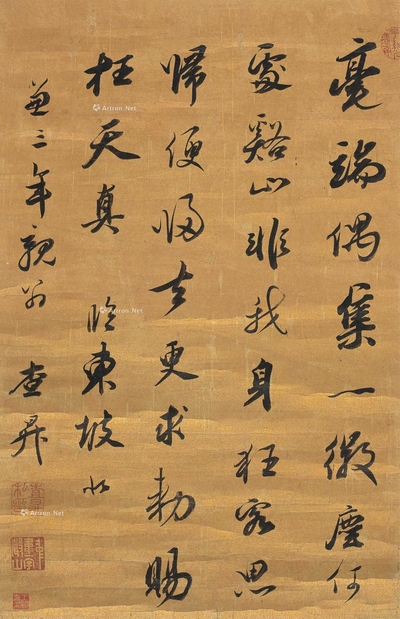 毫端偶集一微塵何
處谿山非我身狂客思
歸便歸去更求勅賜
枉天真 臨東坡似
三年親翁 查昇
Artron.Net
Artron.Net
Artron.Net
Artron.Net